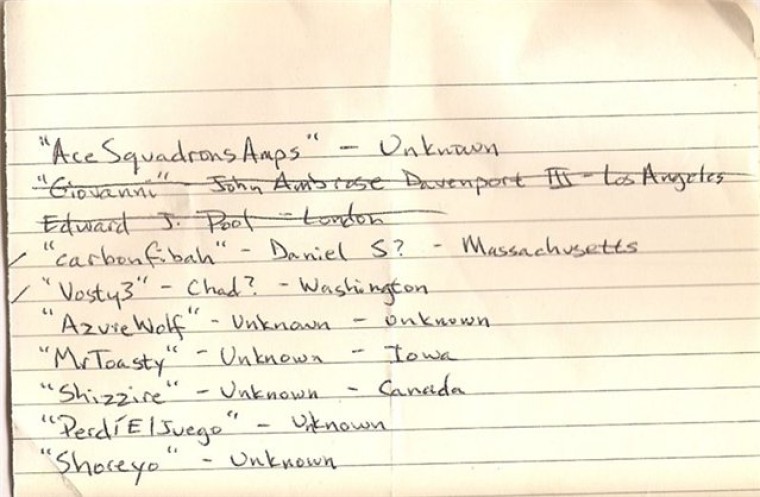 "AceSquadronsAmps" - Unknown
"Giovanni" - John Ambrose Davenport III - Los Angeles
Edward J. Pool - London
"carbonfibah" - Daniel S? - Massachusetts
"Vosty3" - Chad? - Washington
"AzureWolf" - Unknown - Unknown
"MrToasty" - Unknown - Iowa
"Shizzire" - Unknown - Canada
"PerdíElJuego" - Unknown
"Shoreyo" - Unknown